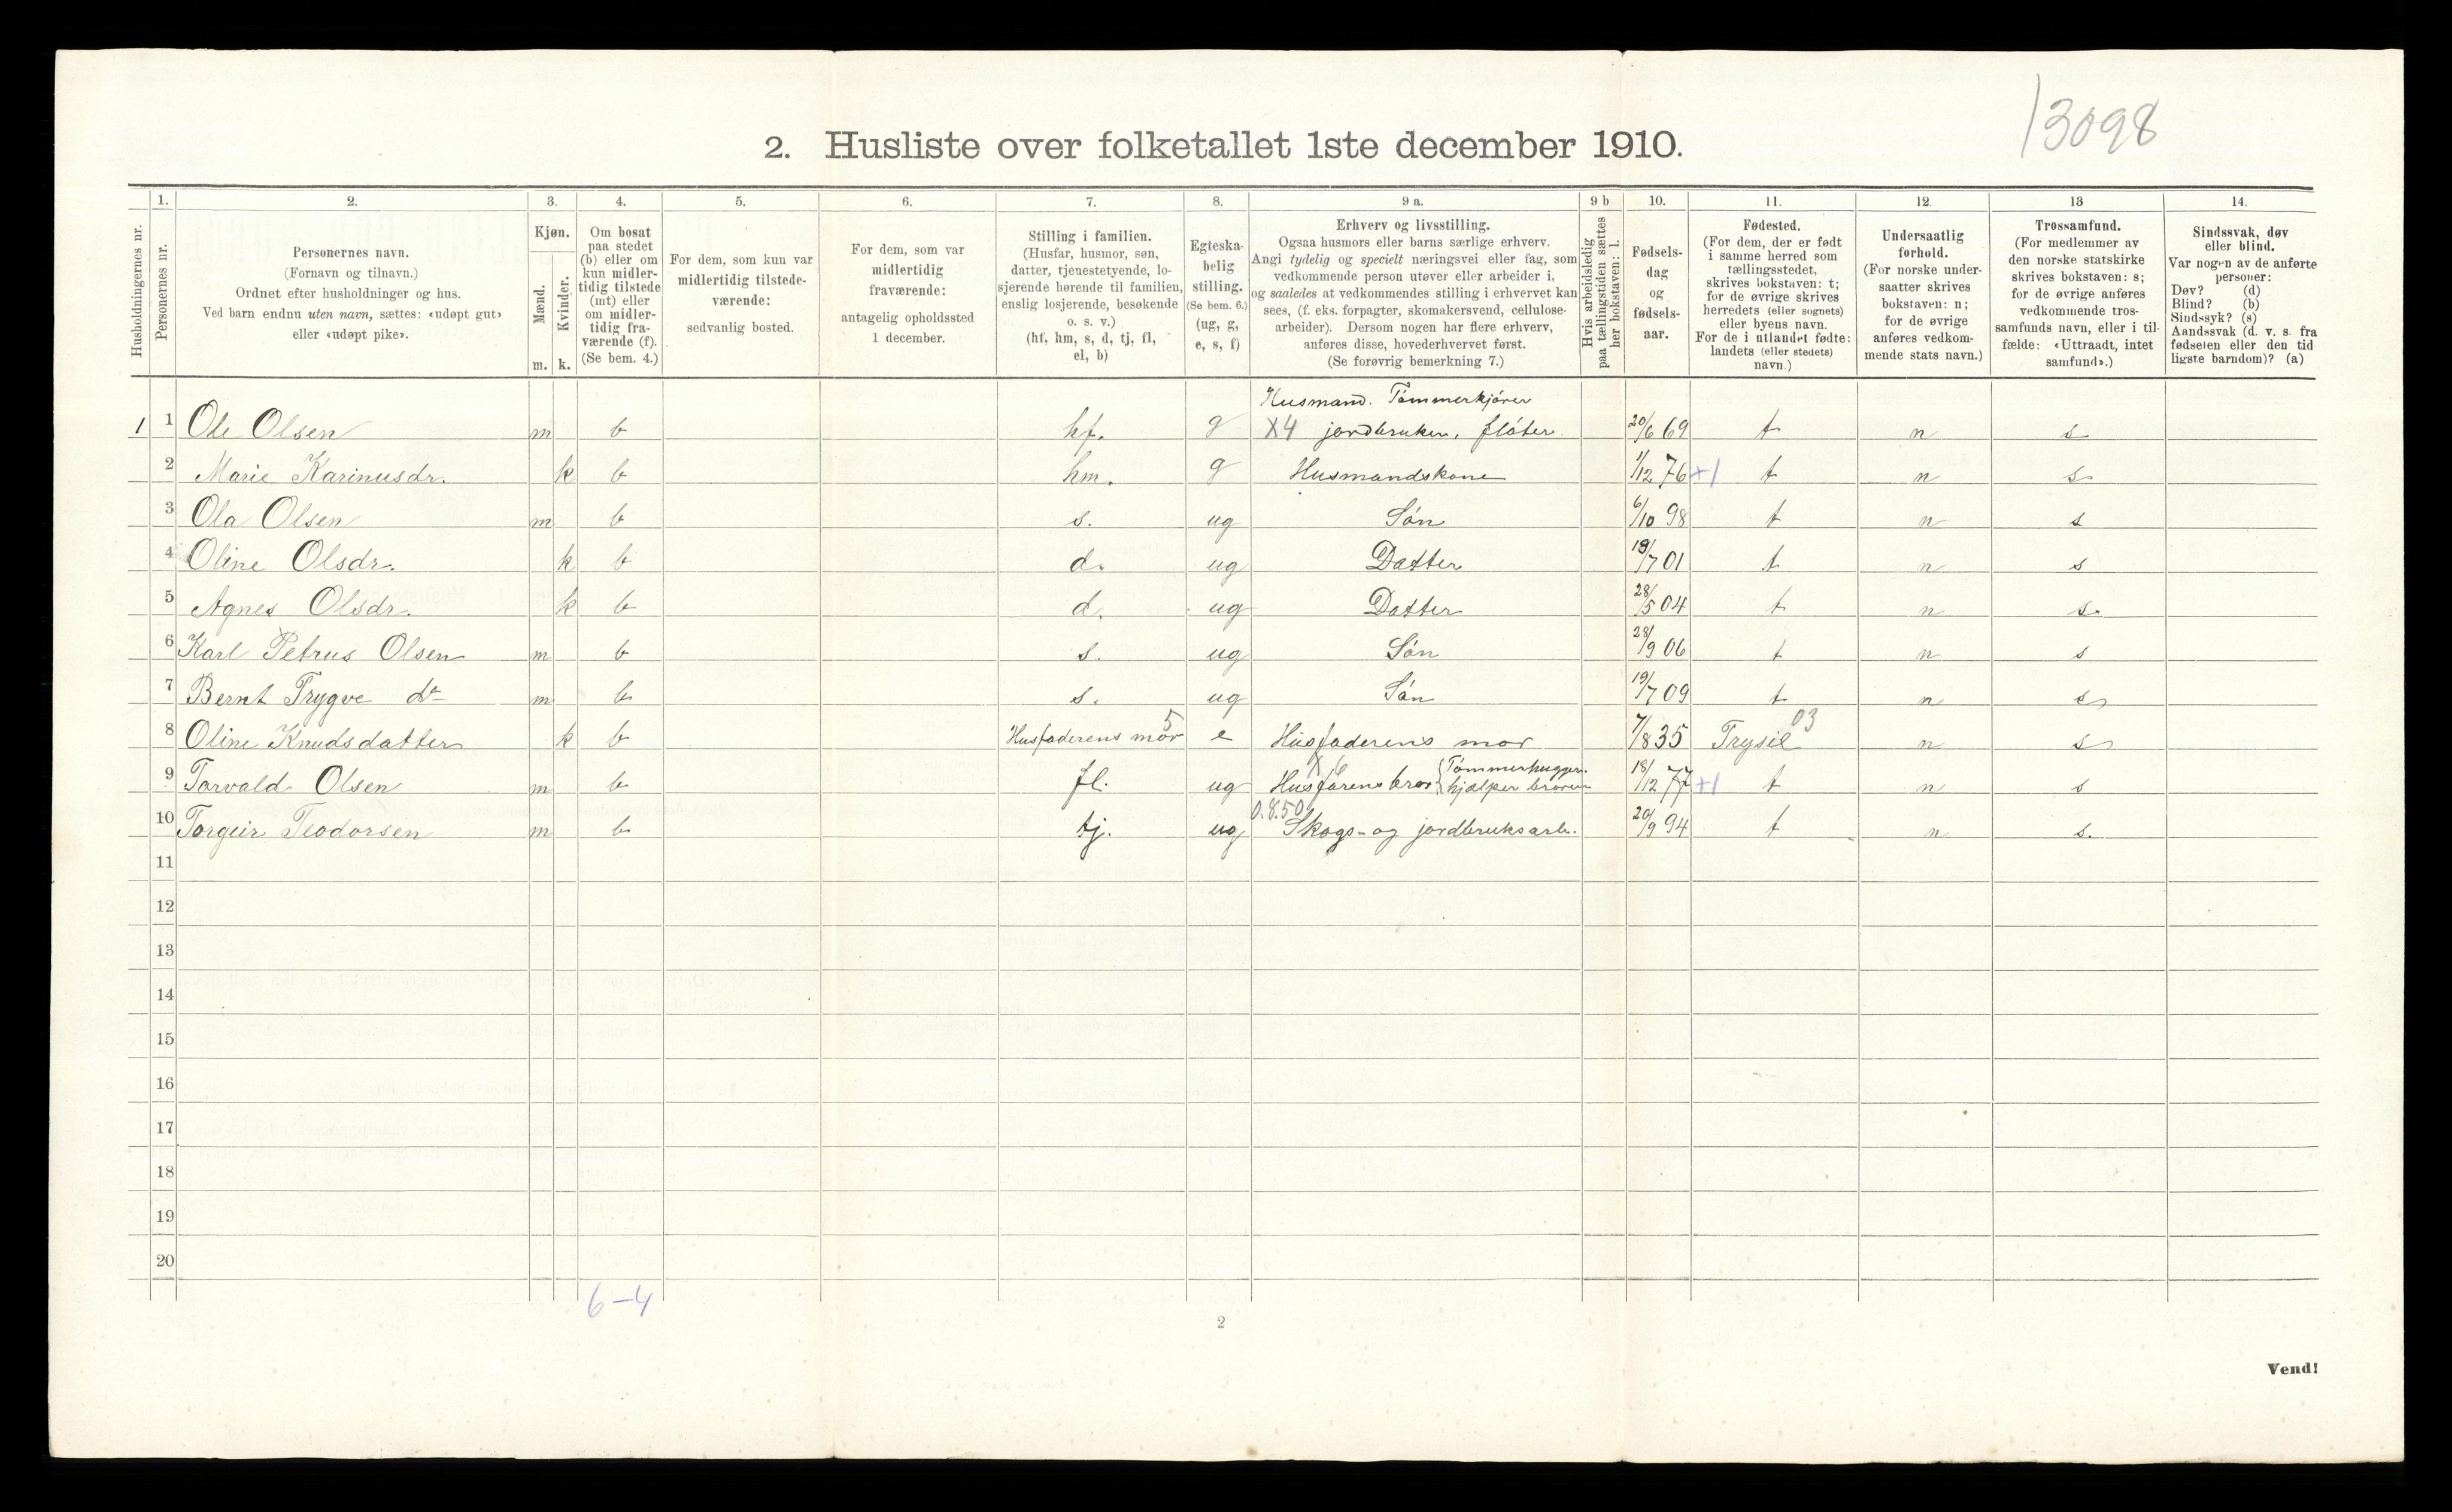 13098
2. Husliste over folketallet 1ste december 1910.
Husholdningernes nr.
1.
Personernes nr.
2.
Personernes navn.
(Fornavn og tilnavn.)
Ordnet efter husholdninger og hus.
Ved barn endnu uten navn, sættes: «udøpt gut»
eller «udøpt pike».
3.
Kjøn.
Mænd.
m.
Kvinder.
k.
4.
Om bosat
paa stedet
(b) eller om
kun midler-
tidig tilstede
(mt) eller
om midler-
tidig fra-
værende (f).
(Se bem. 4.)
5.
For dem, som kun var
midlertidig tilstede-
værende:
sedvanlig bosted.
6.
For dem, som var
midlertidig
fraværende:
antagelig opholdssted
1 december.
7.
Stilling i familien.
(Husfar, husmor, søn,
datter, tjenestetyende, lo-
sjerende hørende til familien,
enslig losjerende, besøkende
o. s. v.)
(hf, hm, s, d, tj, fl,
el, b)
8.
Egteska-
belig
stilling.
(Se bem. 6.)
(ug, g,
e, s, f)
9 a.
Erhverv og livsstilling.
Ogsaa husmors eller barns særlige erhverv.
Angi tydelig og specielt næringsvei eller fag, som
vedkommende person utøver eller arbeider i,
og saaledes at vedkommendes stilling i erhvervet kan
sees, (f. eks. forpagter, skomakersvend, cellulose-
arbeider). Dersom nogen har flere erhverv,
anføres disse, hovederhvervet først.
(Se forøvrig bemerkning 7.)
9 b
Hvis arbeidsledig
paa tællingstiden sættes
her bokstaven: l.
10.
Fødsels-
dag
og
fødsels-
aar.
11.
Fødested.
(For dem, der er født
i samme herred som
tællingsstedet,
skrives bokstaven: t;
for de øvrige skrives
herredets (eller sognets)
eller byens navn.
For de i utlandet fødte:
landets (eller stedets)
navn.)
12.
Undersaatlig
forhold.
(For norske under-
saatter skrives
bokstaven: n;
for de øvrige
anføres vedkom-
mende stats navn.)
13
Trossamfund.
(For medlemmer av
den norske statskirke
skrives bokstaven: s;
for de øvrige anføres
vedkommende tros-
samfunds navn, eller i til-
fælde: «Uttraadt, intet
samfund».)
14.
Sindssvak, døv
eller blind.
Var nogen av de anførte
personer:
Døv? (d)
Blind? (b)
Sindssyk? (s)
Aandssvak (d. v. s. fra
fødselen eller den tid
ligste barndom)? (a)
Husmand. Tømmerkjører
1 1 Ole Olsen m b hf. g X4 jordbruker, fløter 20/6 69 t n s
2 Marie Karinusdr. k b hm. g Husmandskone 1/12 76 +1 t n s
3 Ola Olsen m b s. ug Søn 6/10 98 t n s
4 Oline Olsdr. k b d. ug Datter 19/7 01 t n s
5 Agnes Olsdr. k b d. ug Datter 28/5 04 t n s.
6 Karl Petrus Olsen m b s. ug Søn 28/9 06 t n s
7 Bernt Trygve do m b s. ug Søn 19/7 09 t n s
8 Oline Knudsdatter k b Husfaderens mor 5 e Husfaderens mor 7/8 35 Trysil 03 n s
9 Torvald Olsen m b fl. ug X 6 Husfarens bror {Tømmerhugger. hjælper broren 18/12 77 +1 t n s
10 Torgeir Teodorsen m b tj. ug 0.8.50 Skogs- og jordbruksarb. 20/9 94 t n s.
11
12
13
14
15
16
17
18
19
20
6-4
2
Vend!